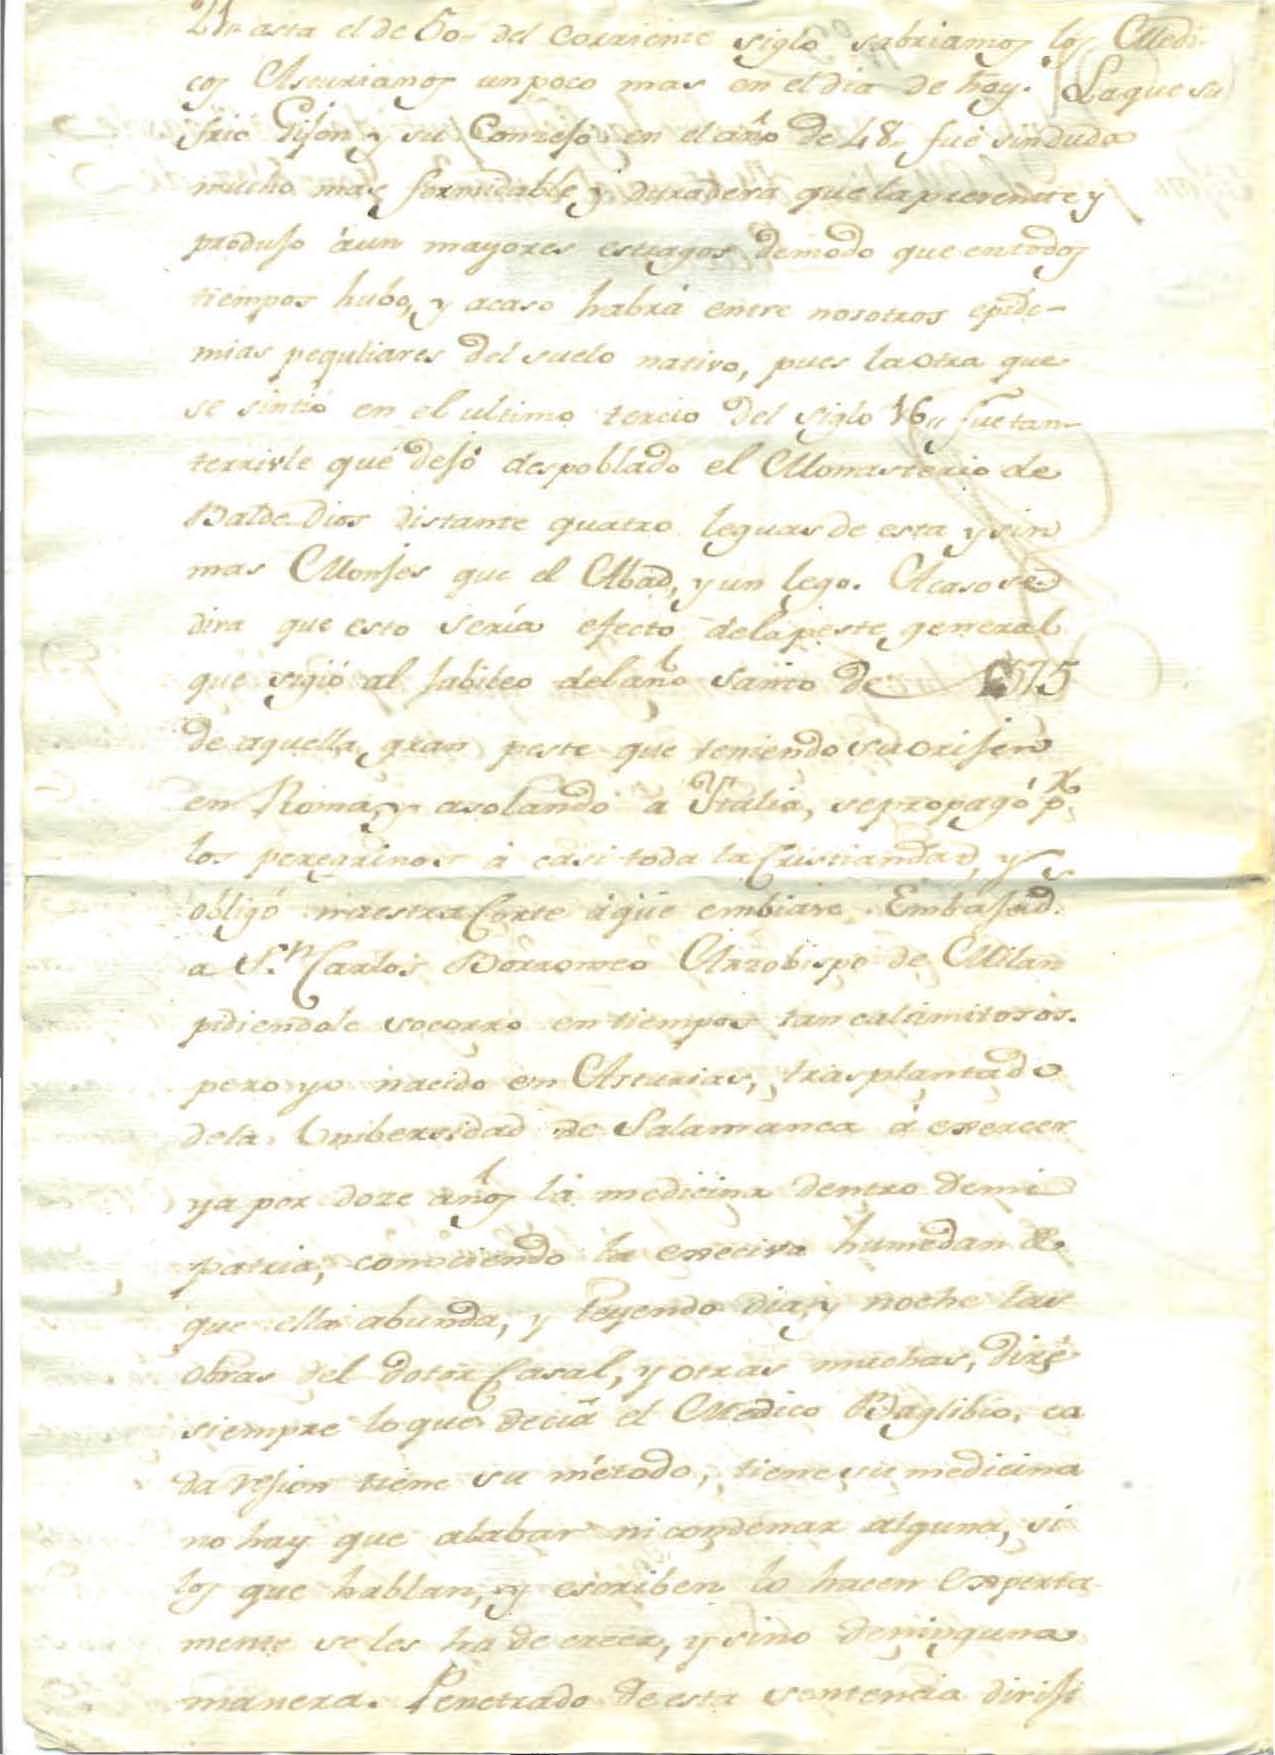 21,, asta el de 50,, del corriente siglo sabriamos los Medi-
cos Asturianos un poco mas en el dia de hoy. La que su
frio Gijon y su Conzejo en el año de 48,, fue sin duda
mucho mas formidable y duradera que la presente y
produjo aun mayores estragos demodo que en todos
tiempos hubo, y acaso habrá entre nosotros epide-
mias pequliares del suelo nativo, pues la otra que
se sintio en el ultimo tercio del siglo 16,, fue tan
terrible que dejó despoblado el Monasterio de
Balde Dios distante quatro leguas de esta y sin
mas Monjes que el Abad, y un lego. Acaso se
dira que esto sería efecto dela peste general
que sigió al Jubileo del año santo de 1575
de aquella gran peste que teniendo su orijen
en Roma, y asolando a Ytalia, se propagó pr.
los peregrinos á casi toda la Cristiandad, y
obligó nuestra Corte á que embiare Embajad.
a Sn. Carlos Borromeo Arzobispo de Milan
pidiendole socorro en tiempos tan calamitosos.
pero yo nacido en Asturias, trasplantado
dela Unibersidad de Salamanca á exercer
ya por doze años la medicina dentro de mi
patria, conociendo la execiva humedad de
que ella abunda, y leyendo dia, y noche las
obras del dotor Casal, y otras muchas, diré
siempre lo que decia el Medico Baglibio, ca
da rejion tiene su método, tiene su medicina
no hay que alabar ni condenar alguna, si
los que hablan, y escriben lo hacen experta-
mente se les ha de creer, y sino de ninguna
manera. Penetrado de esta sentencia diriji